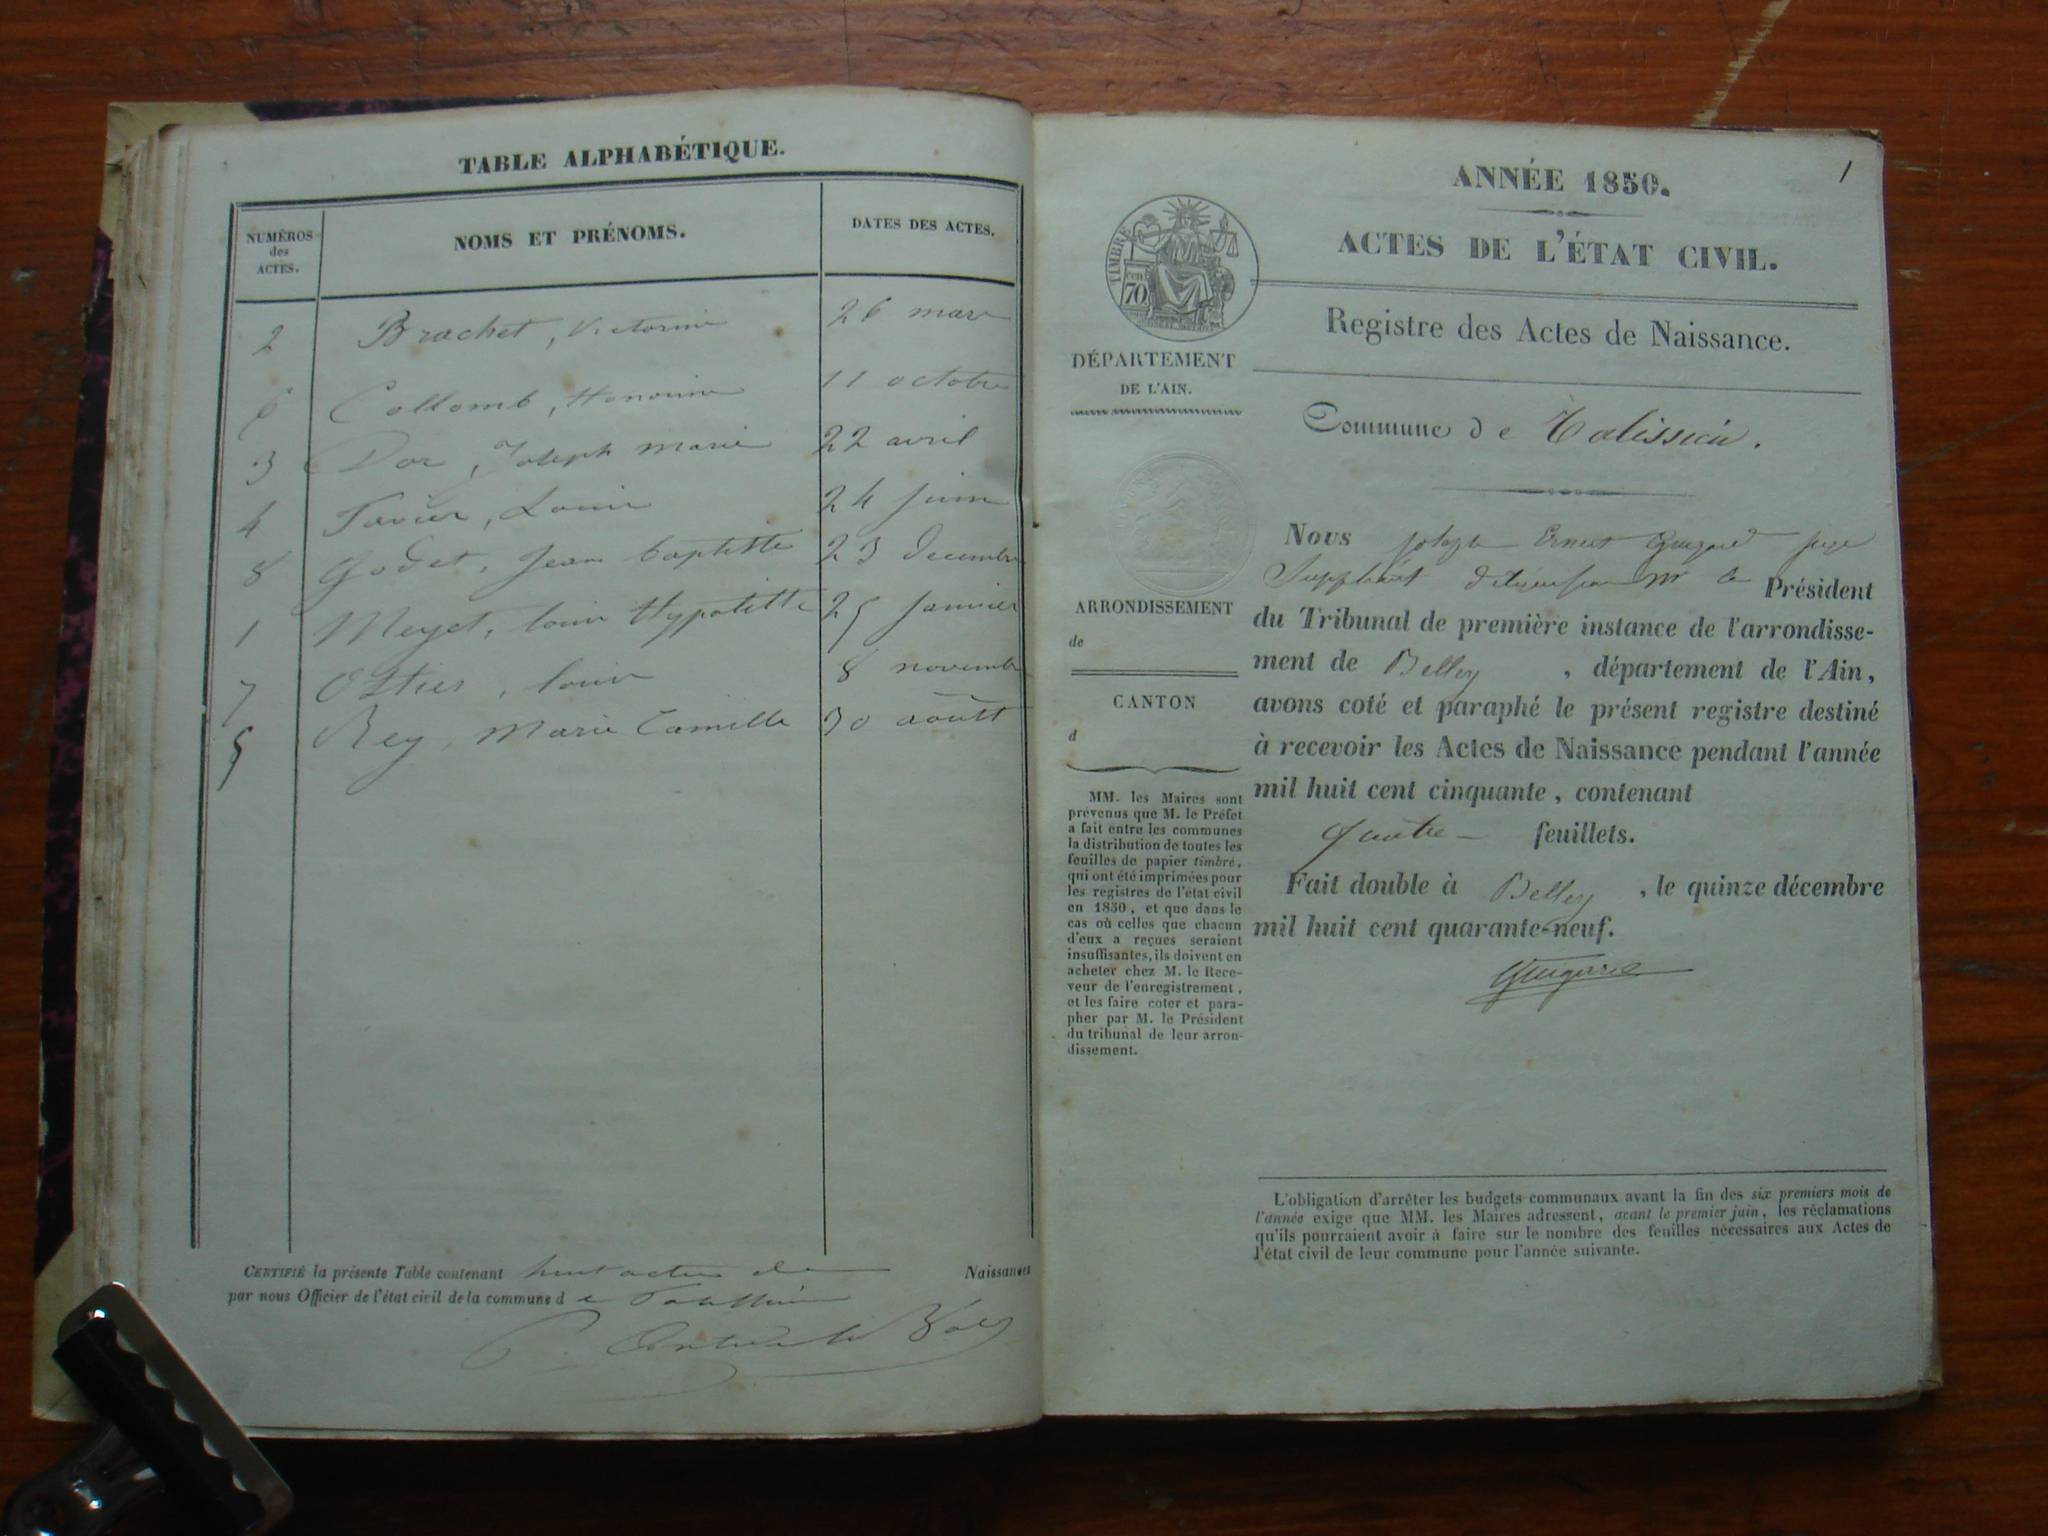 TABLE ALPHABÉTIQUE.
NUMÉROS des ACTES.
NOMS ET PRÉNOMS.
DATES DES ACTES.
2 Brachet, Victorine 26 mars
6 Collomb, Honorine 11 octobre
3 Dor, Joseph Marie 22 avril
4 Favier, Louis 24 juin
8 Godet, Jean baptiste 23 decembre
1 Meyet, louis Hyppolitte 25 janvier
7 Ostier, louis 8 novembre
5 Rey, Marie Camille 30 août
CERTIFIÉ la présente Table contenant huit actes de Naissances
par nous Officier de l'état civil de la commune de Talissieu
1
ANNÉE 1850.
ACTES DE L'ÉTAT CIVIL.
Registre des Actes de Naissance.
TIMBRE
70 cen
DÉPARTEMENT
DE L'AIN.
Commune de Talissieu.
ARRONDISSEMENT
de
CANTON
d
MM. les Maires sont
prévenus que M. le Préfet
a fait entre les communes
la distribution de toutes les
feuilles de papier timbré,
qui ont été imprimées pour
les registres de l'état civil
en 1850, et que dans le
cas où celles que chacun
d'eux a reçues seraient
insuffisantes, ils doivent en
acheter chez M. le Rece-
veur de l'enregistrement,
et les faire coter et para-
pher par M. le Président
du tribunal de leur arron-
dissement.
Nous joseph Ernest Guigard juge
Suppléant Mr le Président
du Tribunal de première instance de l'arrondisse-
ment de Belley, département de l'Ain,
avons coté et paraphé le présent registre destiné
à recevoir les Actes de Naissance pendant l'année
mil huit cent cinquante, contenant
quatre feuillets.
Fait double à Belley, le quinze décembre
mil huit cent quarante-neuf.
Guigard
L'obligation d'arrêter les budgets communaux avant la fin des six premiers mois de
l'année exige que MM. les Maires adressent, avant le premier juin, les réclamations
qu'ils pourraient avoir à faire sur le nombre des feuilles nécessaires aux Actes de
l'état civil de leur commune pour l'année suivante.